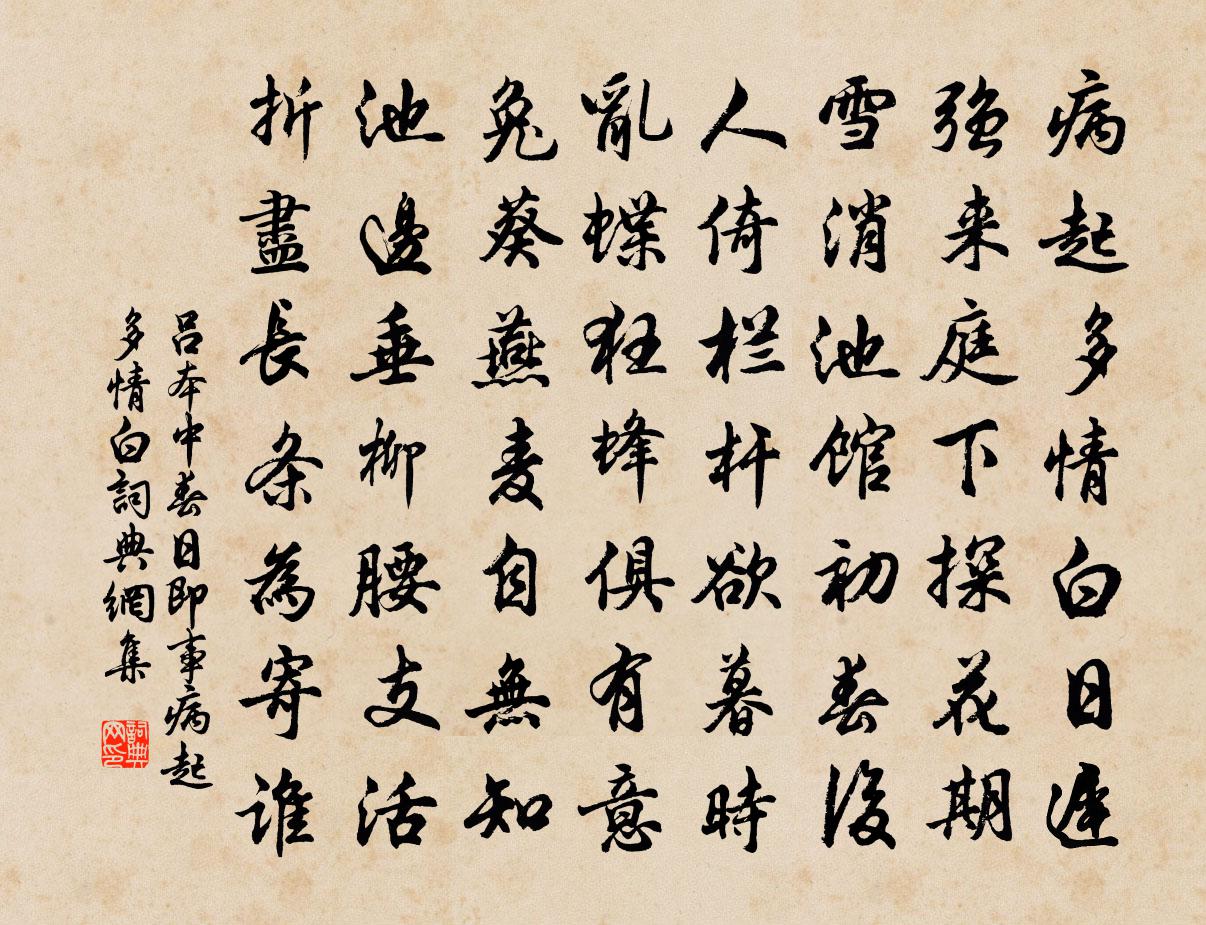 病起多情白日遲
強来庭下探花期
雪消池馆初春後
人倚栏杆欲暮時
亂蝶狂蜂俱有意
兔葵燕麦自無知
池邊垂柳腰支活
折盡長条為寄谁
吕本中春日即事病起
多情白詞典網集
詞典
网印